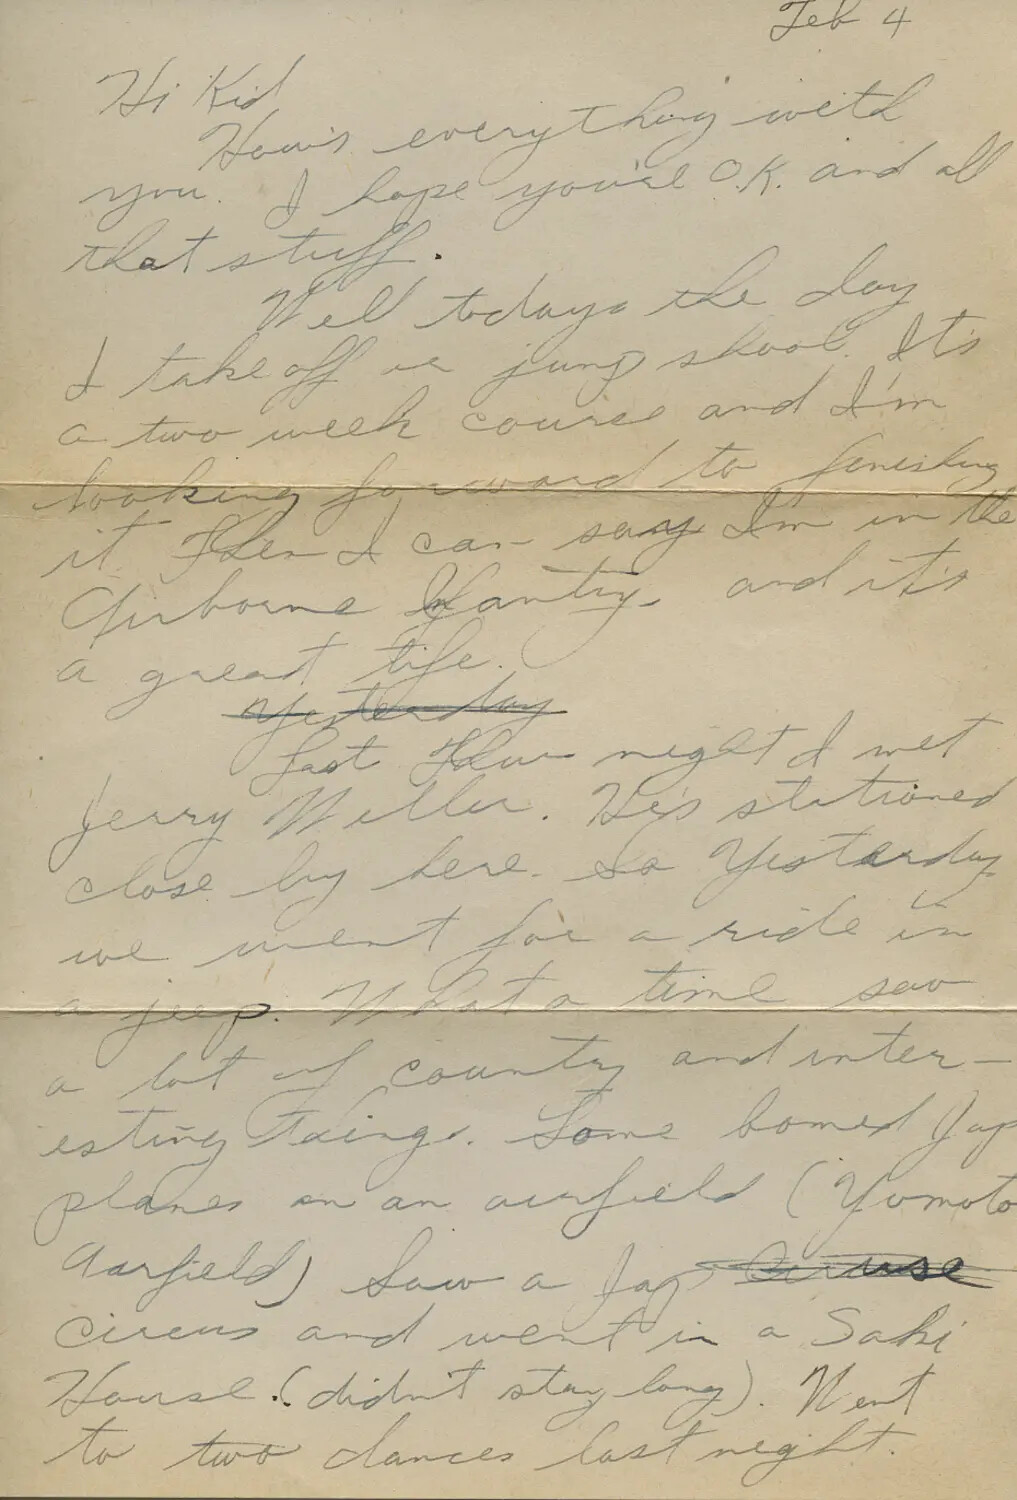 Feb 4
Hi Kid
How's everything with
you. I hope you're O.K. and all
that stuff.
Well todays the day
I take off in jump skool. It's
a two week course and I'm
looking forward to finishing
it. Then I can say I'm in the
Airborne Infantry. and it's
a great life.
Yesterday
Last Thur night I met
Jerry Miller. He's stationed
close by here. So Yesterday
we went for a ride in
a jeep. What a time saw
a lot of country and inter-
esting things. Some bomed Jap
planes on an airfield (Yomoto
Airfield) Saw a Jap
circus and went in a Saki
House. (didn't stay long). Went
to two dances last night.